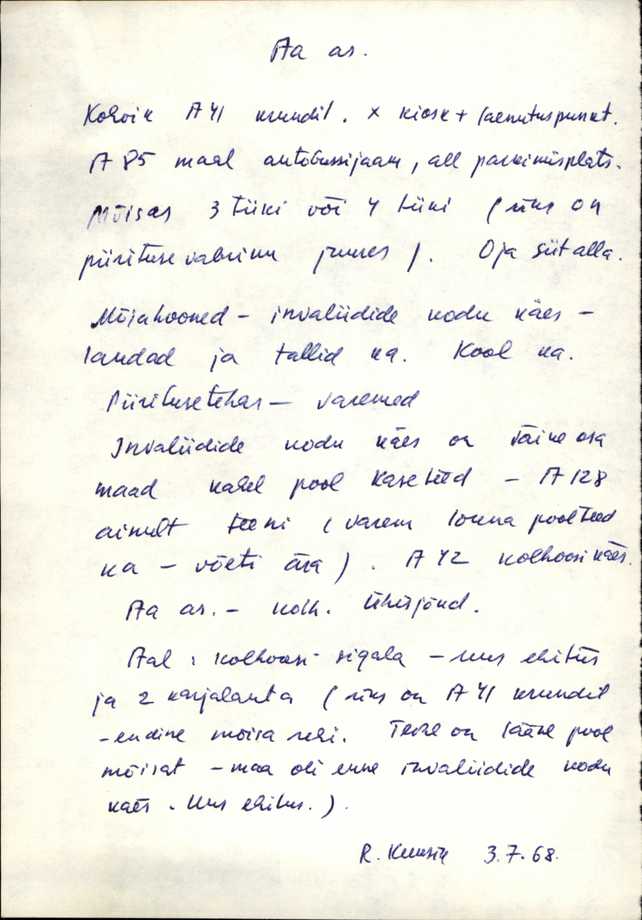 Aa as.
Kohvik A 41 krundil. x kiosk + laenutuspunkt.
A 85 maal autobussijaam, all parkimisplats.
Mõisas 3 tiiki või 4 tiiki (üks on
piiritusevabriku juures). Oja siit alla.
Mõisahooned – invaliidide kodu käes –
laudad ja tallid ka. Kool ka.
Piiritusetehas – varemed
Invaliidide kodu käes on väike osa
maad kahel pool kaseteed – A 128
ainult teeni (varem lõuna poolteed
ka – võeti ära). A 42 kolhoosi käes.
Aa as. – kolh. Ühisjõud.
Aal: kolhoosi sigala – uus ehitus
ja 2 karjalauta (üks on A 41 krundil
– endine mõisa rehi. Teine on lääne pool
mõisat – maa oli enne invaliidide kodu
käes. Uus ehitus.).
R. Kuusik 3.7.68.